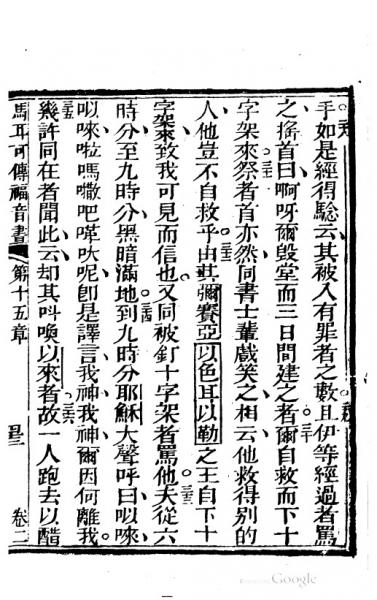 手如是經得驗云其被入有罪者之數且伊等經過者罵
之搖首曰啊呀爾毀堂而三日間建之者爾自救而下十
字架來祭者首亦然同書士輩戲笑之相云他救得別的
人他豈不自救乎由其彌賽亞以色耳以勒之王自下十
字架來致我可見而信也又同被釘十字架者罵他夫從六
時分至九時分黑暗滿地到九時分耶穌大聲呼曰㕽唻
㕽唻啦嗎撒吧㗲吠呢卽是譯言我神我神爾因何離我
幾許同在者聞此云却其呌喚以來者故一人跑去以醋
馬耳可傳福音書 第十五章 卷二
Google